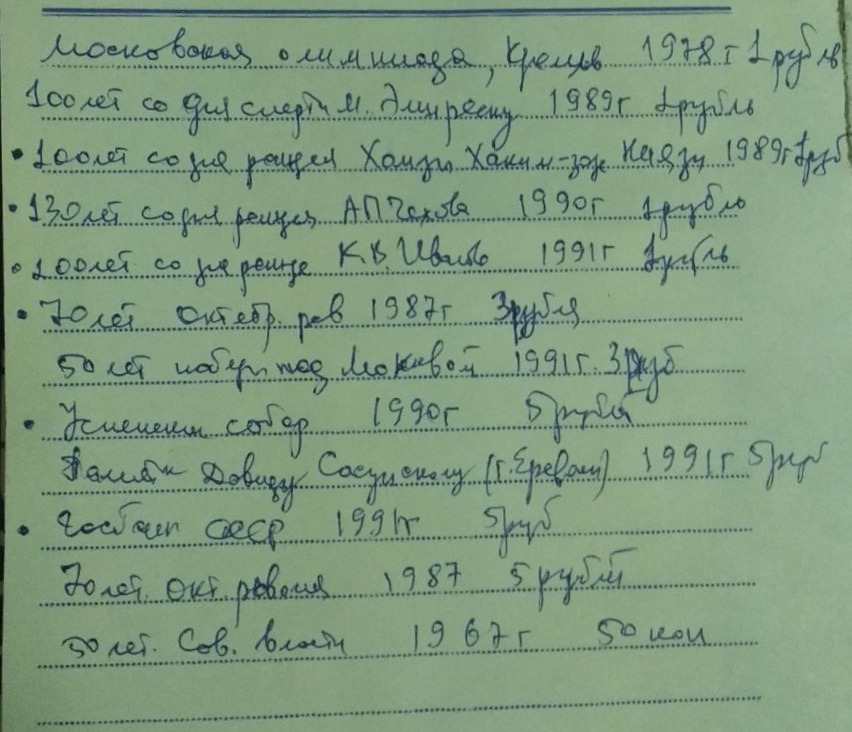 Московская олимпиада, Кремль 1978 г 1 рубль
100 лет со дня смерти М. Эминеску 1989 г 1 рубль
• 100 лет со дня рожден Хамзы Хаким-заде Ниязи 1989 г 1 руб
• 130 лет со дня рожден А П Чехова 1990 г 1 рубль
• 100 лет со дня рожде К. В. Иванов 1991 г 1 рубль
• 70 лет октябр. рев 1987 г 3 рубля
50 лет победы под Москвой 1991 г. 3 руб
• Успенски собор 1990 г 5 рублей
Памятн Давиду Сасунскому (г. Ереван) 1991 г 5 руб
• Госбанк СССР 1991 г 5 руб
70 лет. Окт. 1987 5 рублей
50 лет. Сов. власти 1967 г 50 коп